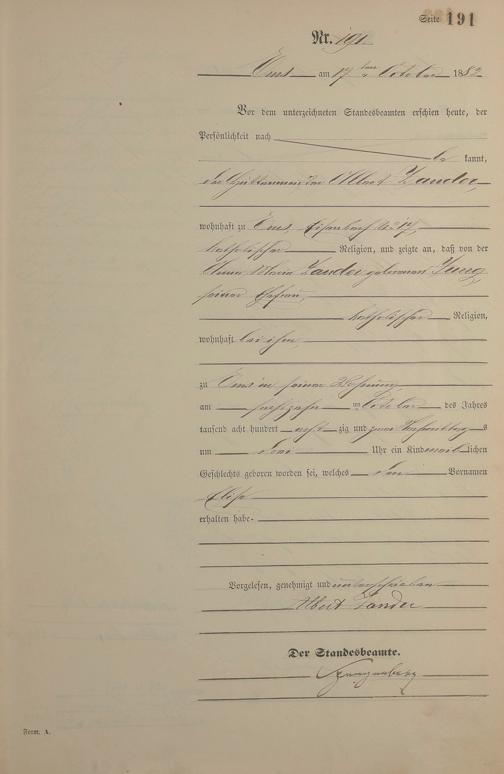 Seite 191
Nr. 191
Ems am 17 ten October 1882
Vor dem unterzeichneten Standesbeamten erschien heute, der
Persönlichkeit nach
be kannt,
der Albert Zander,
wohnhaft zu Ems, 17,
katholischer Religion, und zeigte an, daß von der
Maria Zander geborenen Jung
seiner Ehefrau,
katholischer Religion,
wohnhaft bei ihm,
zu Ems in seiner Wohnung
am ten October des Jahres
tausend acht hundert acht zig und zwei s
um Uhr ein Kind lichen
Geschlechts geboren worden sei, welches den Vornamen
Elise
erhalten habe.
Vorgelesen, genehmigt und unterschrieben
Albert Zander
Der Standesbeamte.
Form. A.